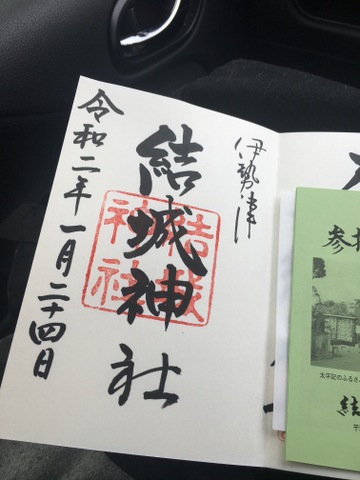 伊勢津
結城神社
結城神社
令和二年一月二十四日
参拝
太平記のふるさ
結
〒